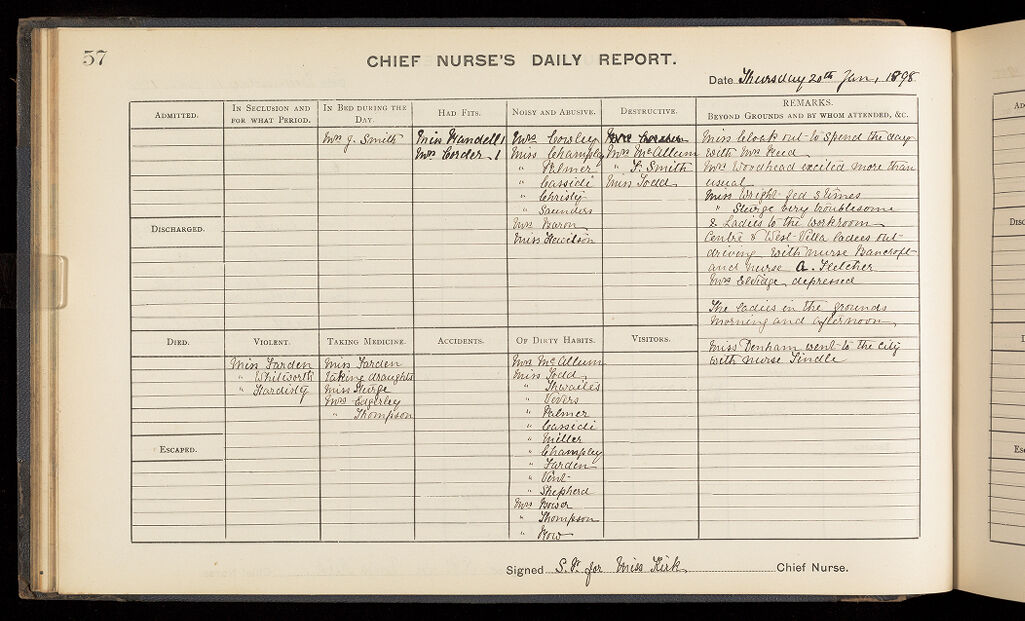 57
CHIEF NURSE'S DAILY REPORT.
Date Thursday 20th Jan, 1898
ADMITTED.
IN SECLUSION AND FOR WHAT PERIOD.
IN BED DURING THE DAY.
Mrs J. Smith
HAD FITS.
Miss Handell 1
Mrs Corder 1
NOISY AND ABUSIVE.
Mrs Cowley
Miss Champley
" Palmer
" Cassidi
" Christy
" Saunders
Mrs Baron
Miss Hewitson
DESTRUCTIVE.
Mrs
Mrs McAllum
" F. Smith
Miss Todd
REMARKS.
BEYOND GROUNDS AND BY WHOM ATTENDED, &C.
Miss Cloak out to spend the day
with Mrs Reed
Mrs Woodhead excited more than
usual
Miss Wright fed 3 times
" Sturge very troublesome
2 Ladies to the workroom
Centre & West-Villa ladies out-
driving with nurse Bancroft
and nurse A. Fletcher
Mrs Elvidge depressed
The ladies in the grounds
morning and afternoon
Miss Denham went to the City
with nurse Tindle
DISCHARGED.
DIED.
VIOLENT.
Miss Farden
" Whitworth
" Hardisty
TAKING MEDICINE.
Miss Farden
taking draughts
Miss Sturge
Mrs Edgerley
" Thompson
ACCIDENTS.
OF DIRTY HABITS.
Mrs McAllum
Miss Todd
" Thwaites
" Vevers
" Palmer
" Cassidi
" Miller
" Champley
" Farden
" Vent
" Shepherd
Mrs
" Thompson
" How
VISITORS.
ESCAPED.
Signed S.F. for Miss Kirk Chief Nurse.